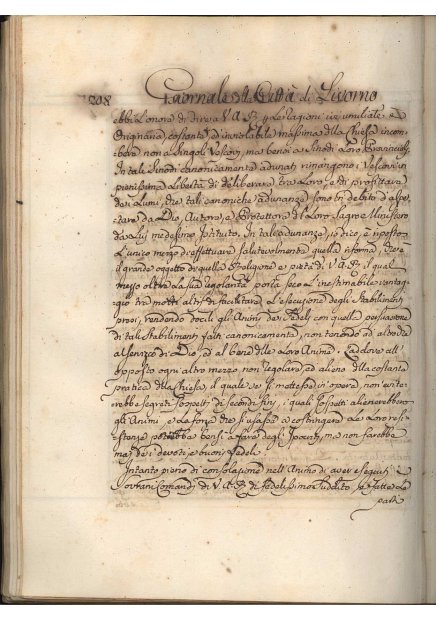 1208 Giornale della Città di Livorno
ebbi l'onore di dire a V. A. R. le ragioni umiliate, e
Originaria, costante, ed inviolabile massima della Chiesa incom-
bere non a' singoli Vescovi, ma bensì a' Sinodi loro Provinciali.
In tali Sinodi canonicamente adunati rimangono i Vescovi in
pienissima libertà di deliberare tra loro, e di profittare
de' Lumi, che tali canoniche adunanze sono in debito d'aspet-
tare da Dio, Autore, e Protettore del loro Sagro Ministero
da Lui medesimo istituto. In tale adunanza, io dico, è riposto
l'unico mezzo di effettuare salutevolmente quella riforma, che è
il grande oggetto di quella Religione e pietà di V. A. R. il qual
mezzo oltre la sua legalità porta seco l'inestimabile vantag-
gio tra molti altri di facilitare l'esecuzione degli Stabilimenti
presi, rendendo docili gli Animi dei Fedeli con quella persuasione
di tali Stabilimenti fatti canonicamente, non tendendo ad altro che
al servizio di Dio, ed al bene delle loro Anime; laddove all'
opposto ogni altro mezzo non regolare ed alieno dalla costante
pratica della Chiesa, il quale se si mettesse in opera, non evite-
rebbe segreti sospetti di secondi fini, i quali sospetti alienerebbero
gli Animi, e la forza che si usasse a costringere la loro resi-
stenza potrebbe bensì a fare degli Ipocriti, ma non farebbe
mai de' devoti e buoni Fedeli.
Intanto pieno di consolazione nell'Animo di aver eseguiti i
Sovrani Comandi di V. A. R. di fedelissimo Suddito, e fatte le
parti